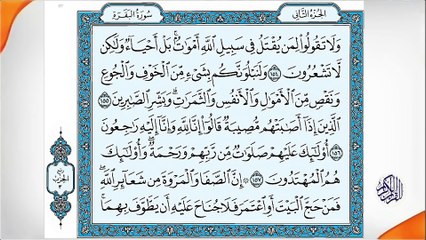 الجزء الثاني
سورة البقرة
ولا تقولوا لمن يقتل في سبيل الله أموات بل أحياء ولكن
لا تشعرون ١٥٤ ولنبلونكم بشيء من الخوف والجوع
ونقص من الأموال والأنفس والثمرات وبشر الصابرين ١٥٥
الذين إذا أصابتهم مصيبة قالوا إنا لله وإنا إليه راجعون
١٥٦ أولئك عليهم صلوات من ربهم ورحمة وأولئك
هم المهتدون ١٥٧ إن الصفا والمروة من شعائر الله
فمن حج البيت أو اعتمر فلا جناح عليه أن يطوف بهما